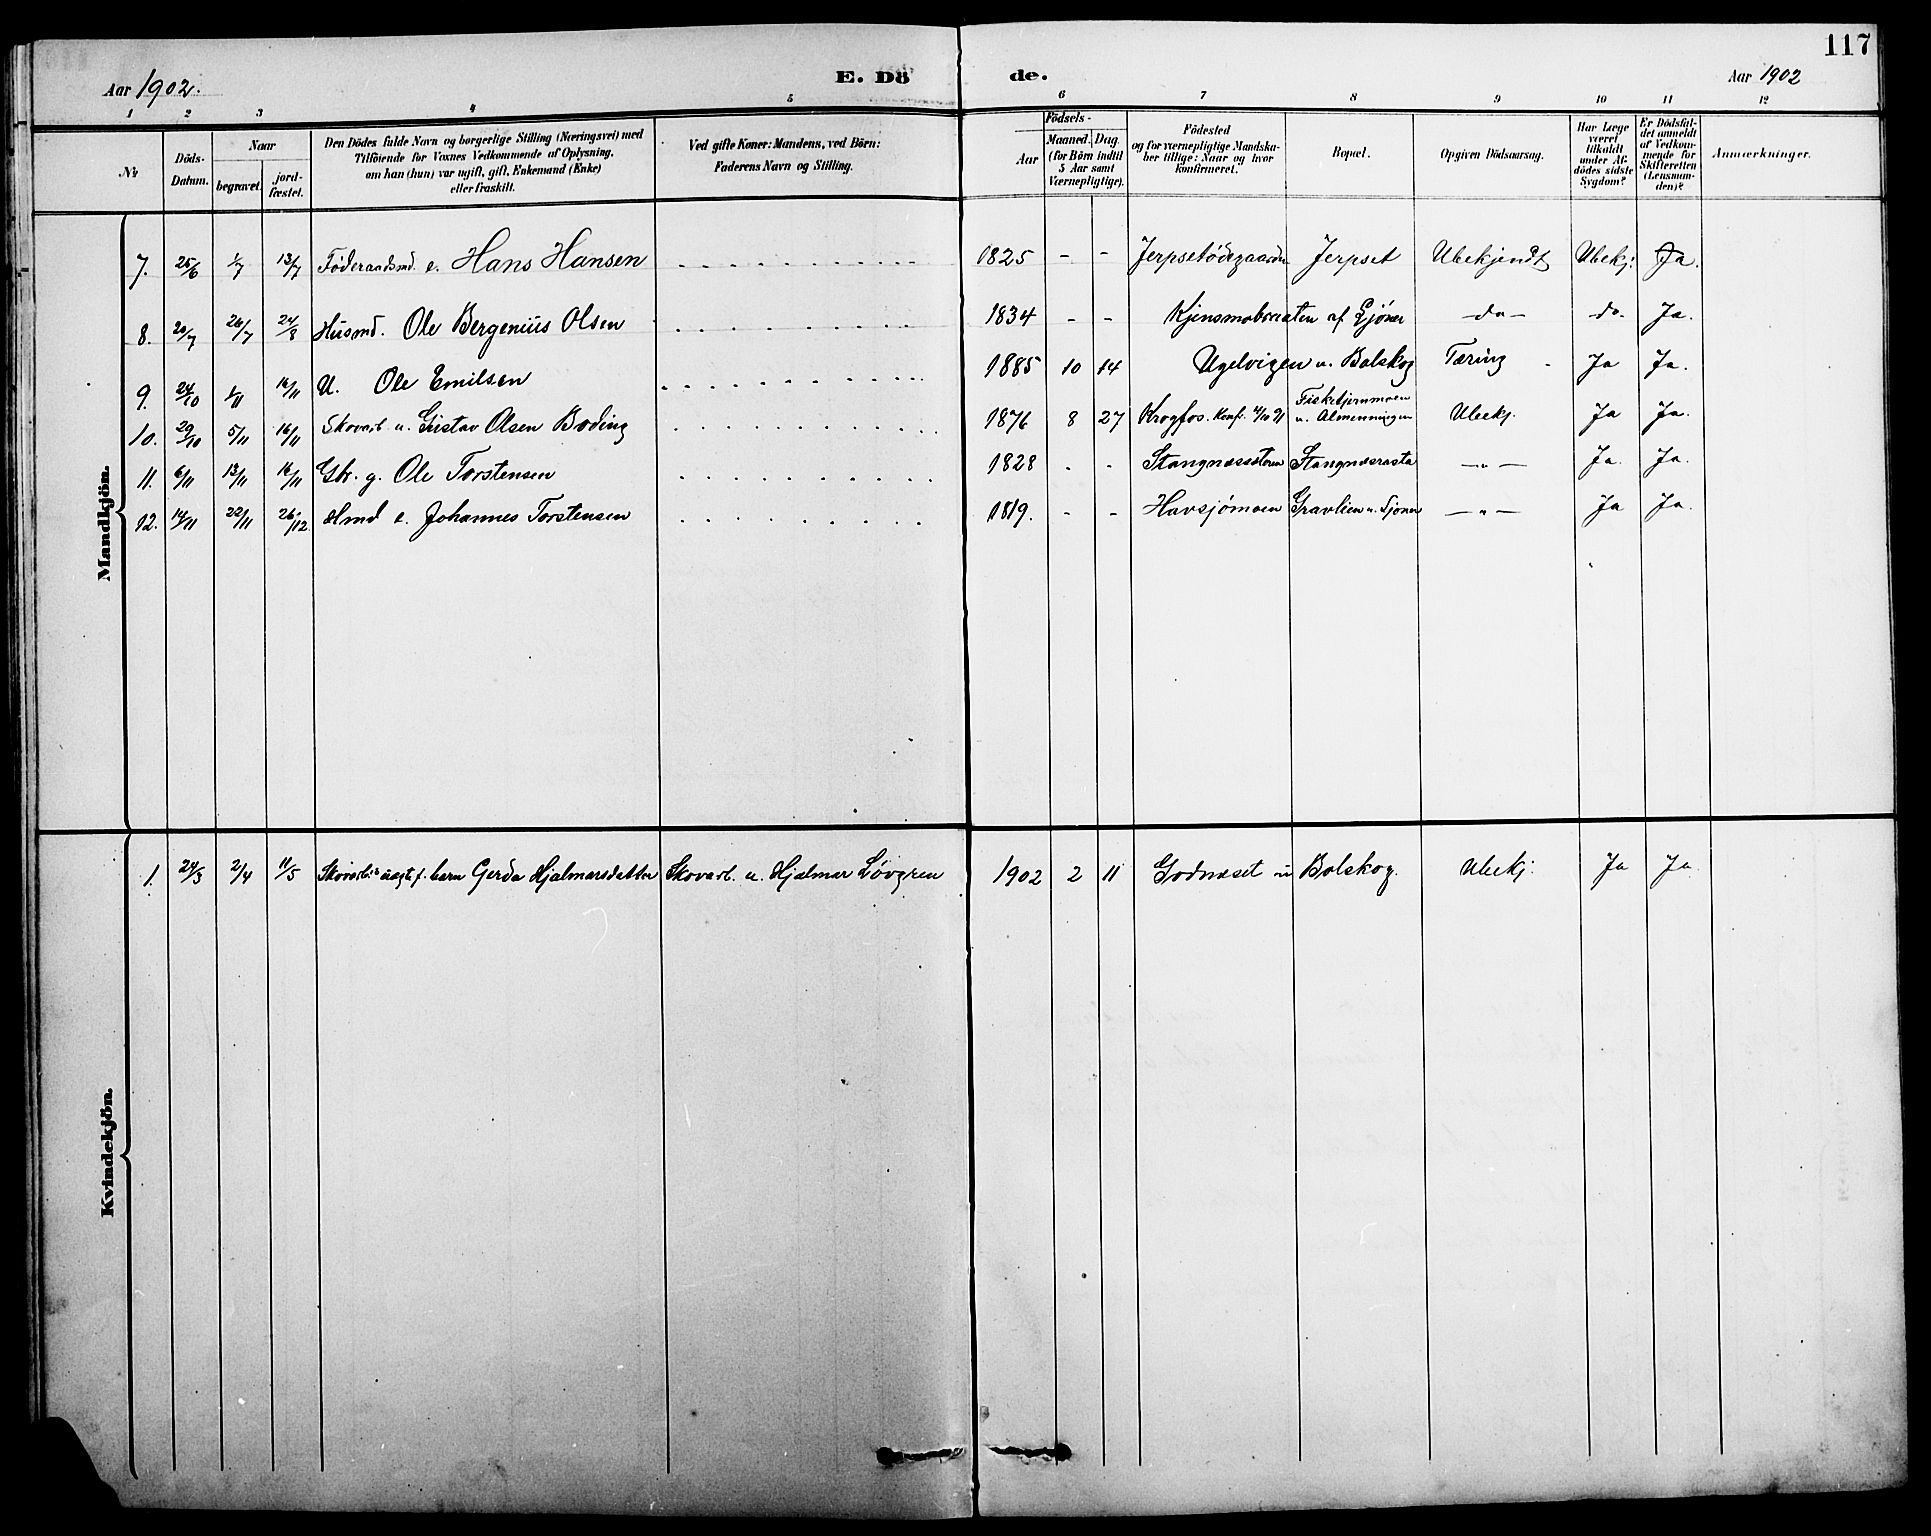 117
Aar 1902.
E. Dö
de.
Aar 1902
1 2 3 4 5 6 7 8 9 10 11 12
No
Döds-
Datum.
Naar
begravet.
jord-
fæstet.
Den Dödes fulde Navn og borgerlige Stilling (Næringsvei) med
Tilföiende for Voxnes Vedkommende af Oplysning,
om han (hun) var ugift, gift, Enkemand (Enke)
eller fraskilt.
Ved gifte Koner: Mandens, ved Börn:
Faderens Navn og Stilling.
Födsels-
Aar
Maaned.
Dag.
(for Börn indtil
5 Aar samt
Værnepligtige).
Födested
og for værnepligtige Mandska-
ber tillige: Naar og hvor
konfirmeret.
Bopæl.
Opgiven Dödsaarsag.
Har Læge
været
tilkaldt
under Af-
dödes sidste
Sygdom?
Er Dödsfal-
det anmeldt
af Vedkom-
mende for
Skifteretten
(Lensman-
den)?
Anmærkninger.
Mandkjön.
7. 25/6 1/7 13/7 Föderaadsmd. e. Hans Hansen 1825 - - Jerpsetødegaarden Jerpset Ubekjendt Ubekj. Ja.
8. 20/7 26/7 24/8 Husmd. Ole Bergenius Olsen 1834 - - Kjensmobraaten af Gjöner -do- do- Ja.
9. 24/10 1/11 16/11 U. Ole Emilsen 1885 10 14 Ugelvigen u. Bolskog Tæring Ja Ja.
10. 29/10 5/11 16/11 Skovarb u. Gustav Olsen Boding 1876 8 27 Krogfos. Konf. 4/10 91 Fisketjernmoen u. Almenningen Ubekj. Ja Ja.
11. 6/11 13/11 16/11 Gbr. g. Ole Torstensen 1828 - - Stangnæssæteren Stangnæsrasta -"- Ja. Ja.
12. 14/11 22/11 26/12 Hmd e. Johannes Torstensen 1819. - - Havsjömoen Gravlien u. Gjöner -"- Ja Ja.
Kvindekjön.
1. 24/3 2/4 11/5 Skovarb.s uægtef. barn Gerda Hjalmarsdatter Skovarb. u. Hjalmar Lövgren 1902 2 11 Godnæset u Bolskog. Ubekj. Ja Ja